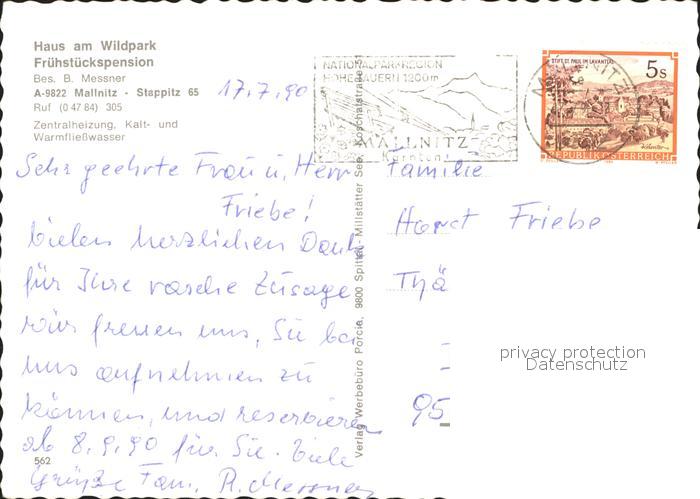 Haus am Wildpark
Frühstückspension
Bes. B. Messner
A-9822 Mallnitz - Stappitz 65
Ruf (0 47 84) 305
Zentralheizung, Kalt- und
Warmfließwasser
17.7.90
Sehr geehrte Frau u. Herr
Friebe!
Vielen herzlichen Dank
für Ihre rasche Zusage
wir freuen uns, Sie bei
uns aufnehmen zu
können, und reservieren
ab 8.9.90 für Sie. Viele
Grüße Fam. R. Messner
562
Verlag Werbebüro Porcia, 9800 Spittal-Millstätter See, Koschatstraße
NATIONALPARKREGION
HOHE TAUERN 1200m
MALLNITZ
Kärnten
STIFT ST. PAUL IM LAVANTTAL
5s
REPUBLIK ÖSTERREICH
Familie
Horst Friebe
Thä
95
privacy protection
Datenschutz